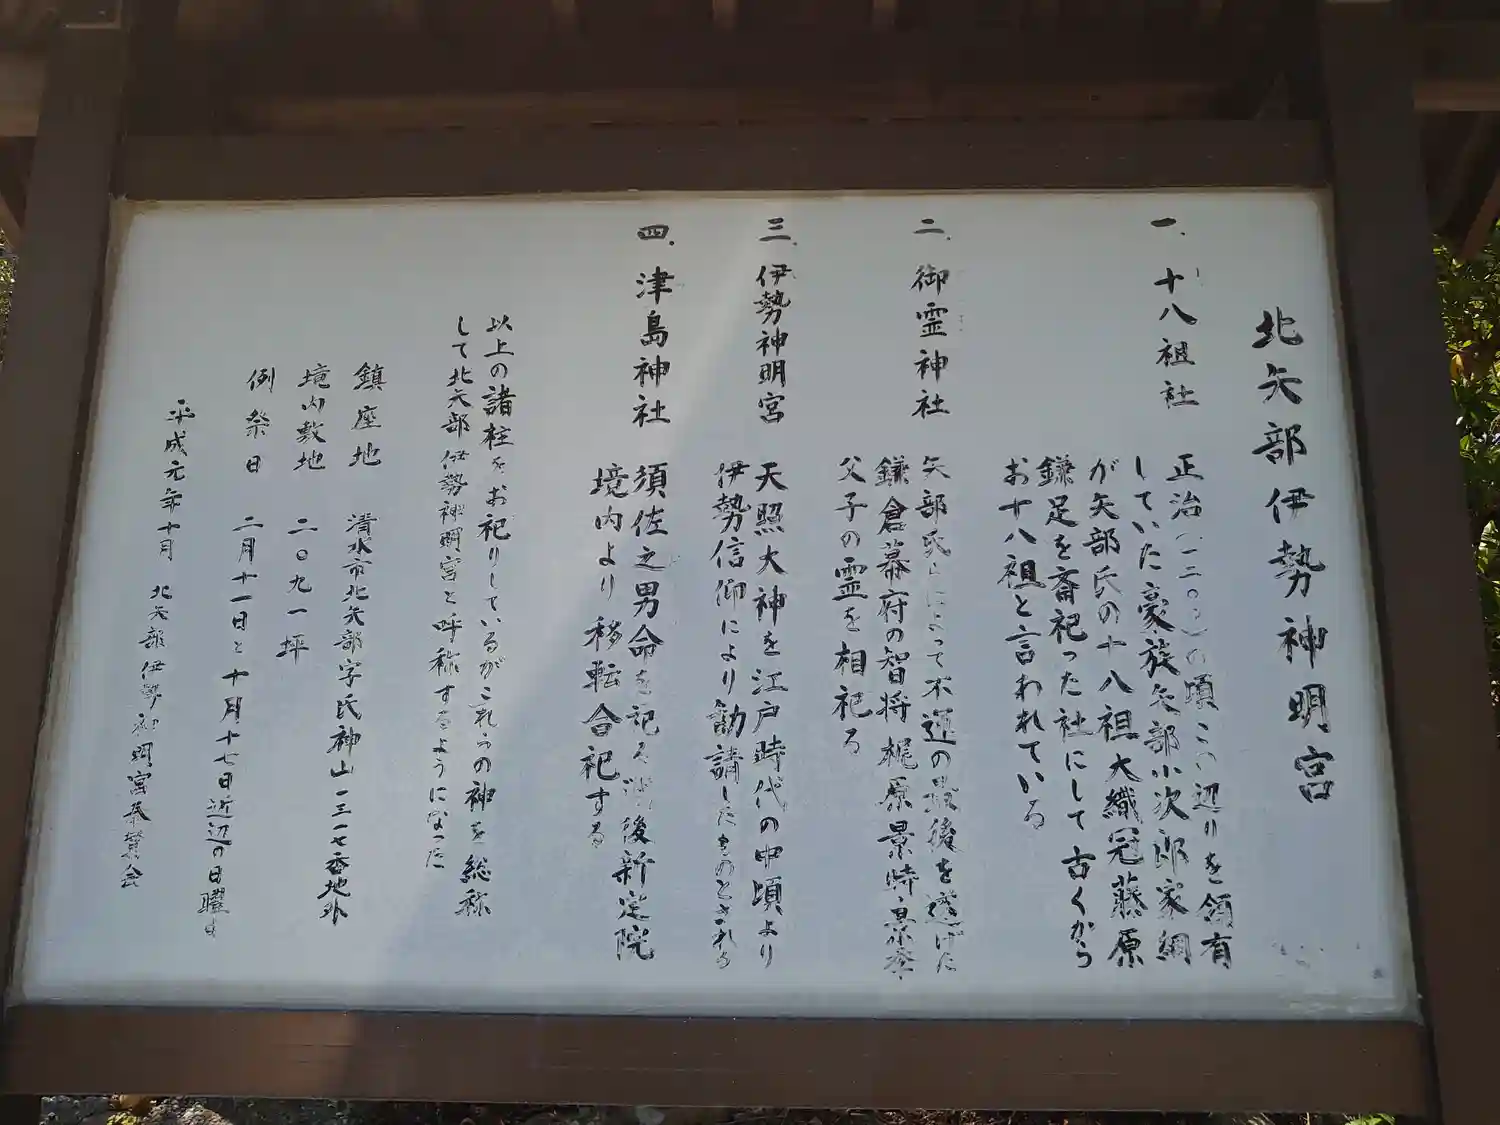 北矢部伊勢神明宮
一、十八祖社
正治(一二〇〇)の頃この辺りを領有
していた豪族矢部小次郎家綱
が矢部氏の十八祖大織冠藤原
鎌足を斎祀った社にして古くから
お十八祖と言われている
二、御霊神社
矢部氏によって不運の最後を遂げた
鎌倉幕府の智将梶原景時景季
父子の霊を相祀る
三、伊勢神明宮
天照大神を江戸時代の中頃より
伊勢信仰により勧請したものとされる
四、津島神社
須佐之男命を祀る 戦後新定院
境内より移転合祀する
以上の諸柱をお祀りしているがこれらの神を総称
して北矢部伊勢神明宮と呼称するようになった
鎮座地 清水市北矢部字氏神山一三一七番地外
境内敷地 二〇九一坪
例祭日 二月十一日と十月十七日近辺の日曜日
平成元年十月 北矢部伊勢神明宮奉賛会